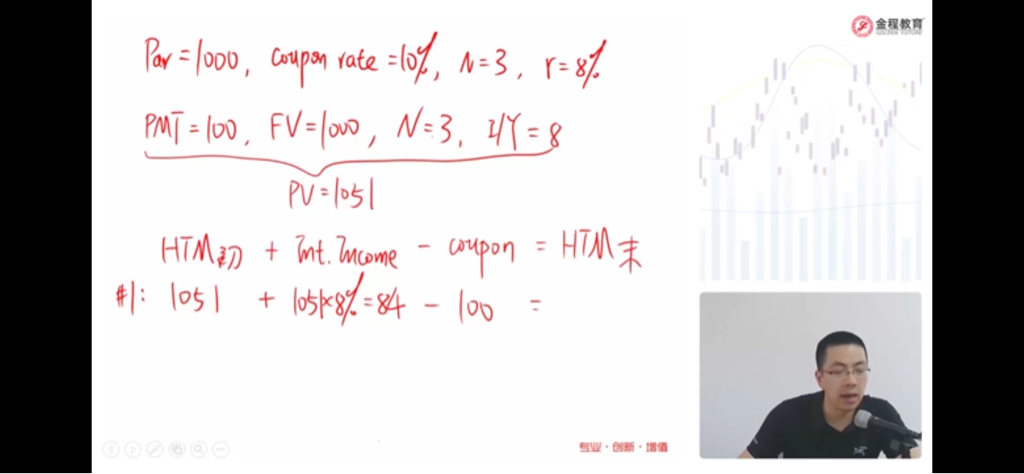 金程教育
GOLDEN FUTURE
Par=1000, coupon rate=10%, N=3, r=8%
PMT=100, FV=1000, N=3, I/Y=8
PV=1051
HTM初 + Int. Income - coupon = HTM末
#1: 1051 + 1051×8%=84 - 100 =
专业·创新·增值